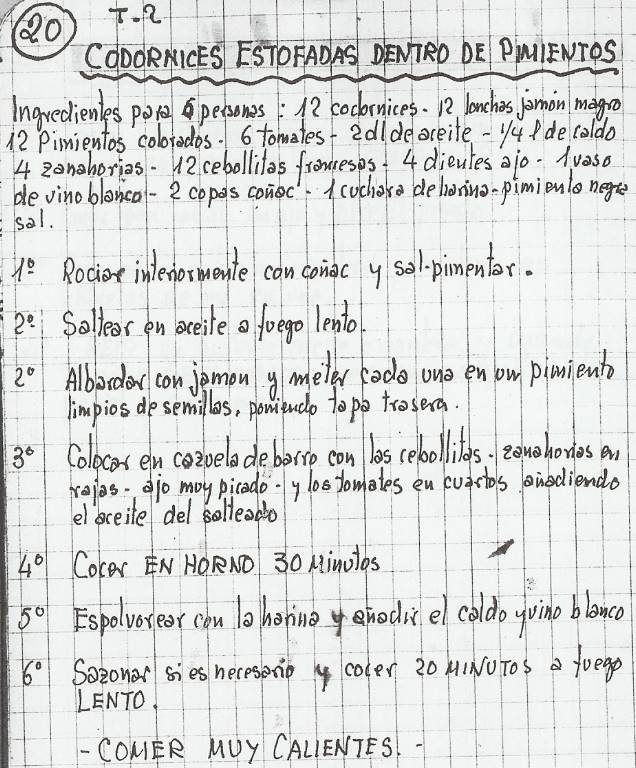 20 T-2
CODORNICES ESTOFADAS DENTRO DE PIMIENTOS
Ingredientes para 6 personas: 12 codornices - 12 lonchas jamón magro
12 Pimientos colorados - 6 tomates - 2dl de aceite - 1/4 l de caldo
4 zanahorias - 12 cebollitas francesas - 4 dientes ajo - 1 vaso
de vino blanco - 2 copas coñac - 1 cuchara de harina - pimienta negra
sal.
1º Rociar interiormente con coñac y sal-pimentar.
2º Saltear en aceite a fuego lento.
2º Albardar con jamon y meter cada una en un pimiento
limpios de semillas, poniendo tapa trasera.
3º Colocar en cazuela de barro con las cebollitas - zanahorias en
rajas - ajo muy picado - y los tomates en cuartos añadiendo
el aceite del salteado
4º Cocer EN HORNO 30 Minutos
5º Espolvorear con la harina y añadir el caldo y vino blanco
6º Sazonar si es necesario y cocer 20 MINUTOS a fuego
LENTO.
- COMER MUY CALIENTES. -